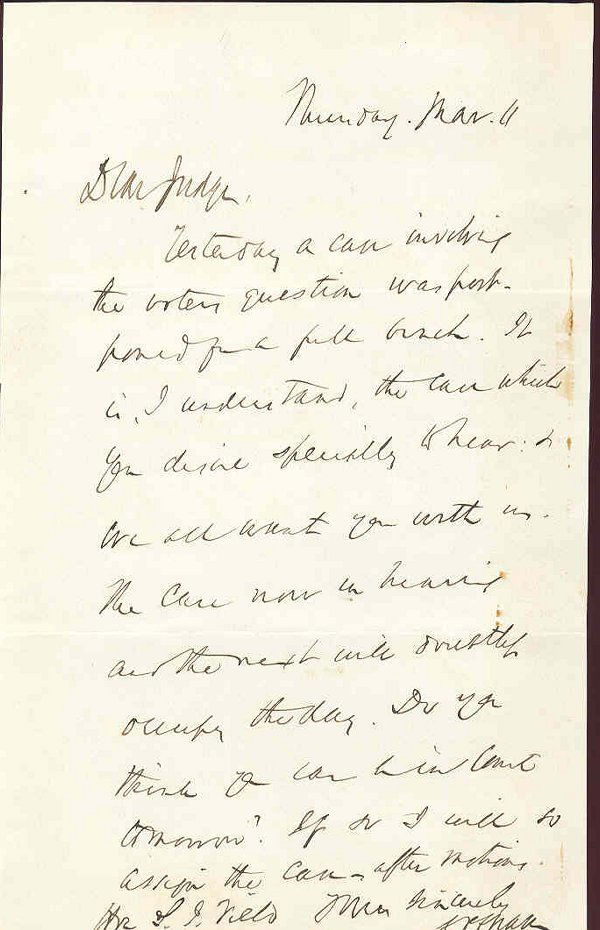 Thursday. Mar. 11
Dear Judge,
Yesterday a case involving
the voters question was post-
poned for a full bench. It
is, I understand, the case which
you desire specially to hear: &
we all want you with us.
The case now in hearing
and the next will doubtless
occupy the day. Do you
think you can be in Court
tomorrow? If so I will so
assign the case - after motions.
Hon S. J. Field Yours Sincerely